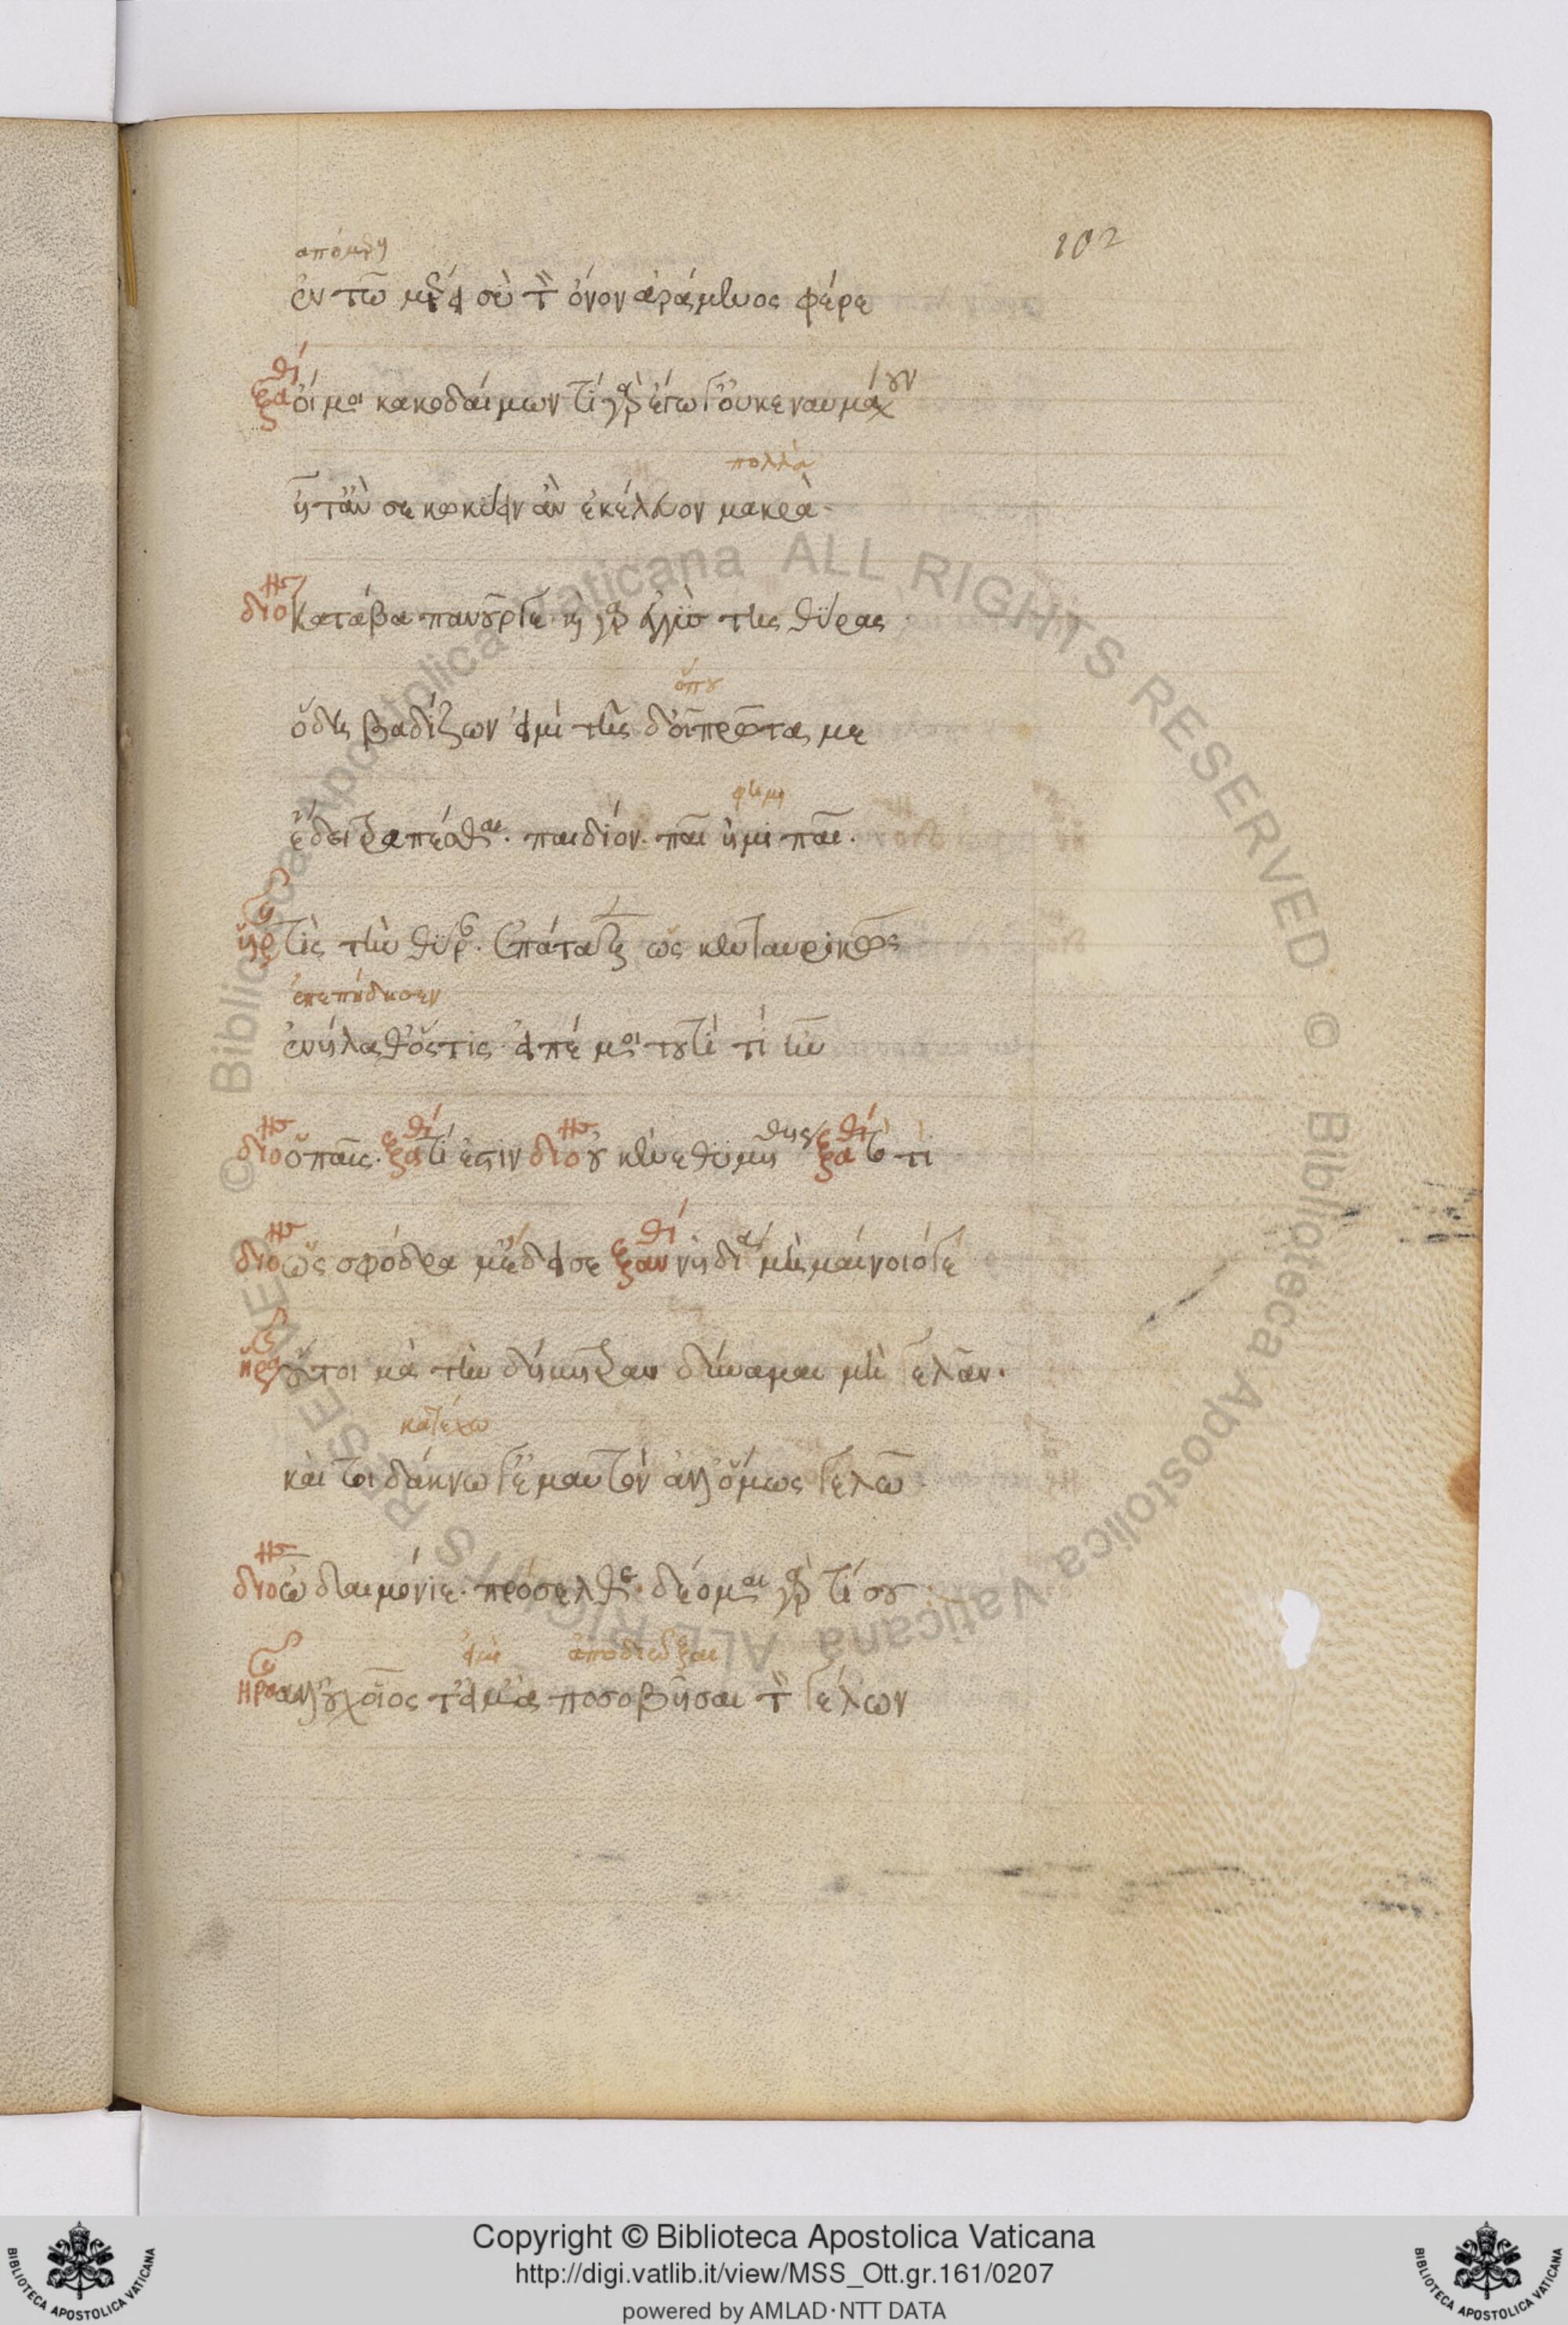 102
ἀπὸ μέρη
ἐν τῶ μέρει σὺ τὸν ὄνον ἀράμενος φέρε
ξαθί οἴμοι κακοδαίμων τί γὰρ ἐγὼ οὐκ ἐναυμάχουν
πολλὰ
ἦ τἄν σε κωκύειν ἂν ἐκέλευον μακρὰ
διο κατάβα πανοῦργε καὶ γὰρ ἐγγὺς τῆς θύρας
ὅπου
ἤδη βαδίζων εἰμὶ τῆς δ οἷ πρῶτά με
φημὶ
ἔδει τραπέσθαι. παιδίον. παῖ ἠμὶ παῖ.
ηρ τίς τὴν θύραν ἐπάταξεν ὡς κενταυρικῶς
ἐπεπήδησεν
ἐνήλαθ ὅστις εἰπέ μοι τουτὶ τί ἦν
διο ὁ παῖς. ξαθί τί ἐστιν διο οὐκ ἐνεθυμήθης ξαθί τὸ τί
διο ὡς σφόδρα μ ἔδεισε ξανθί νὴ δία μὴ μαίνοιό γε
ηρ οὔτοι μὰ τὴν δήμητραν δύναμαι μὴ γελᾶν.
κατέχω
καίτοι δάκνω γ ἐμαυτὸν ἀλλ ὅμως γελῶ
διο ὦ δαιμόνιε. πρόσελθε. δέομαι γάρ τί σου
εἰμὶ ἀποδιῶξαι
ηρα ἀλλ οὐχ οἷός τ εἰμ ἀποσοβῆσαι τὸν γέλων
Copyright © Biblioteca Apostolica Vaticana
http://digi.vatlib.it/view/MSS_Ott.gr.161/0207
powered by AMLAD·NTT DATA
BIBLIOTECA APOSTOLICA VATICANA
BIBLIOTECA APOSTOLICA VATICANA
© Biblioteca Apostolica Vaticana ALL RIGHTS RESERVED © Biblioteca Apostolica Vaticana ALL RIGHTS RESERVED